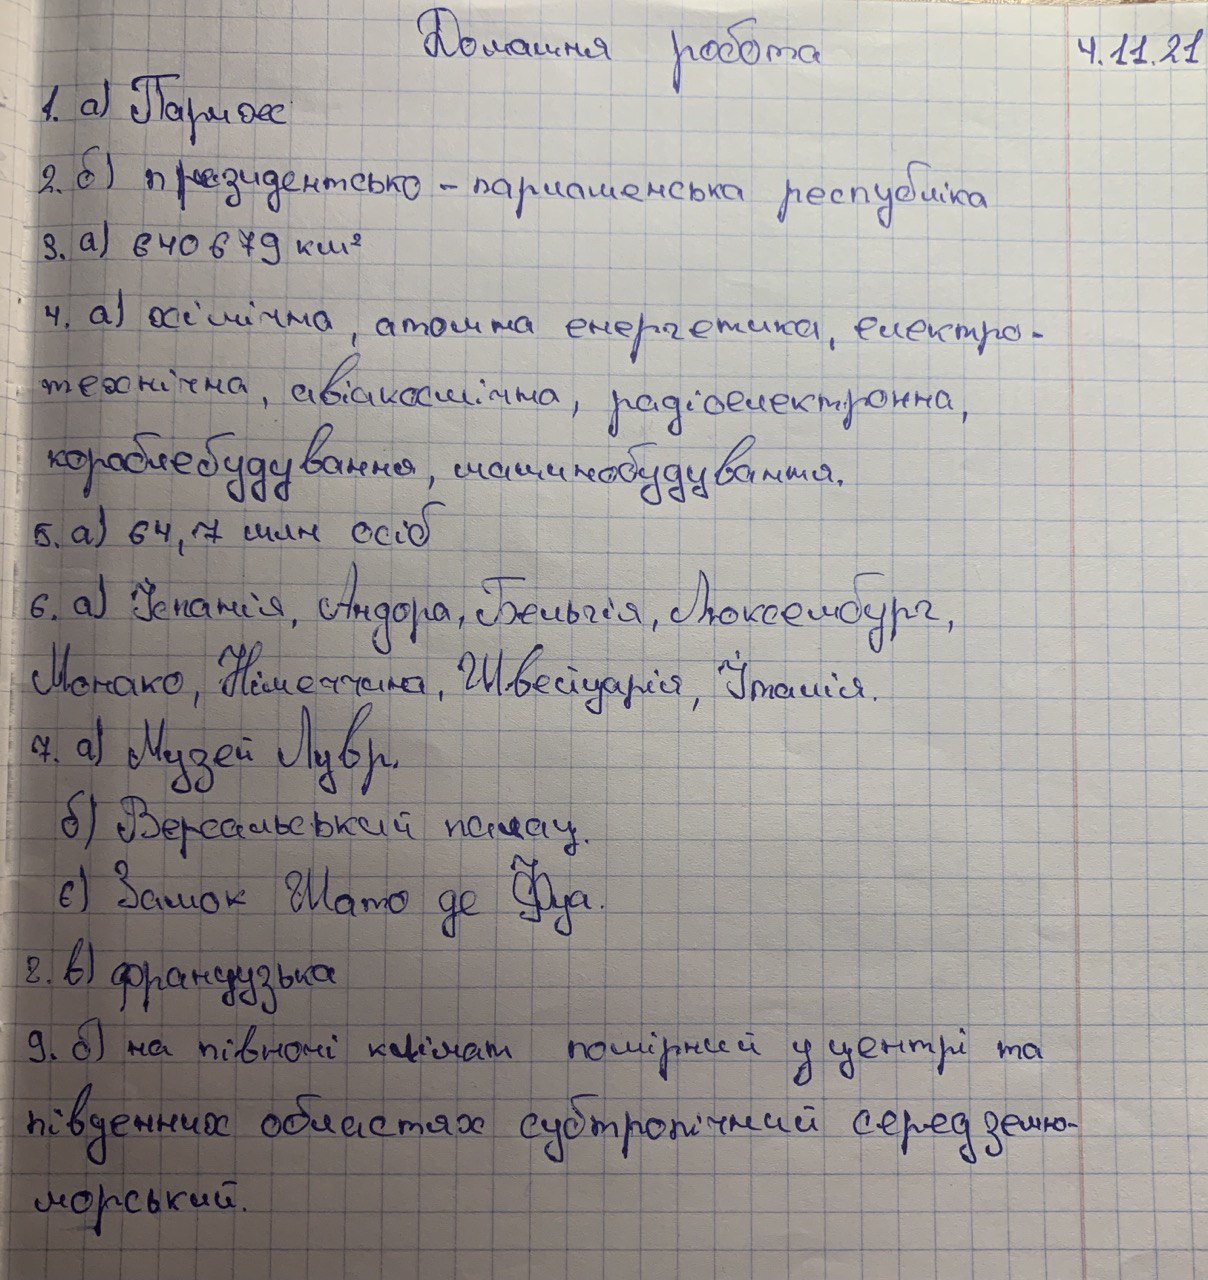 Домашня робота 4.11.21
1. а) Париж
2. б) президентсько-парламенська республіка
3. а) 640 679 км²
4. а) хімічна, атомна енергетика, електро-
технічна, авіакосмічна, радіоелектронна,
кораблебудування, машинобудування.
5. а) 64,7 млн осіб
6. а) Іспанія, Андора, Бельгія, Люксембург,
Монако, Німеччина, Швейцарія, Італія.
7. а) Музей Лувр.
б) Версальський палац.
є) Замок Шато де Фуа.
8. в) французька
9. б) на півночі клімат помірний у центрі та
південних областях субтропічний середземно-
морський.